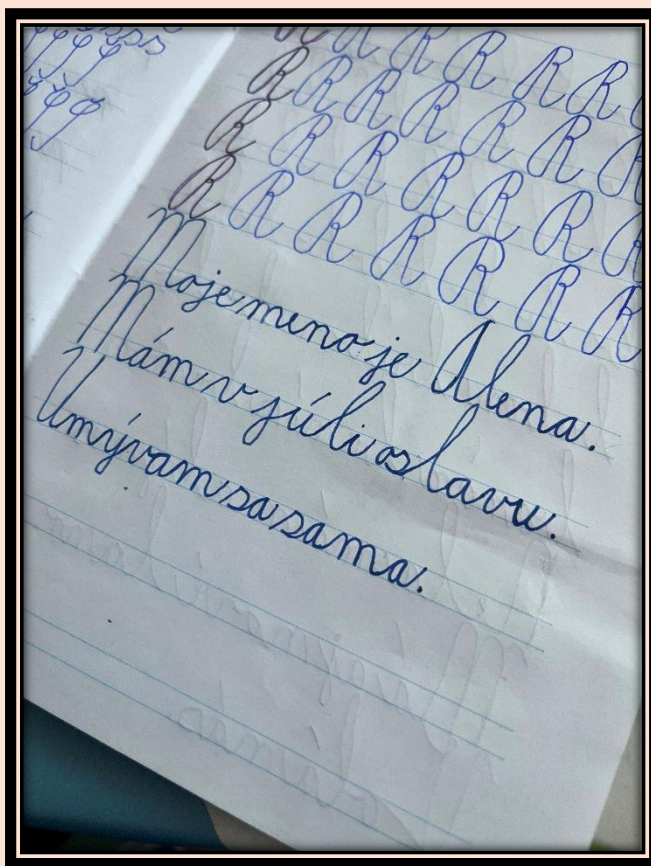 R R R R R R
R R R R R R R
R R R R R R R
R R R R R R R
Moje meno je Alena.
Mám v júli oslavu.
Umývam sa sama.